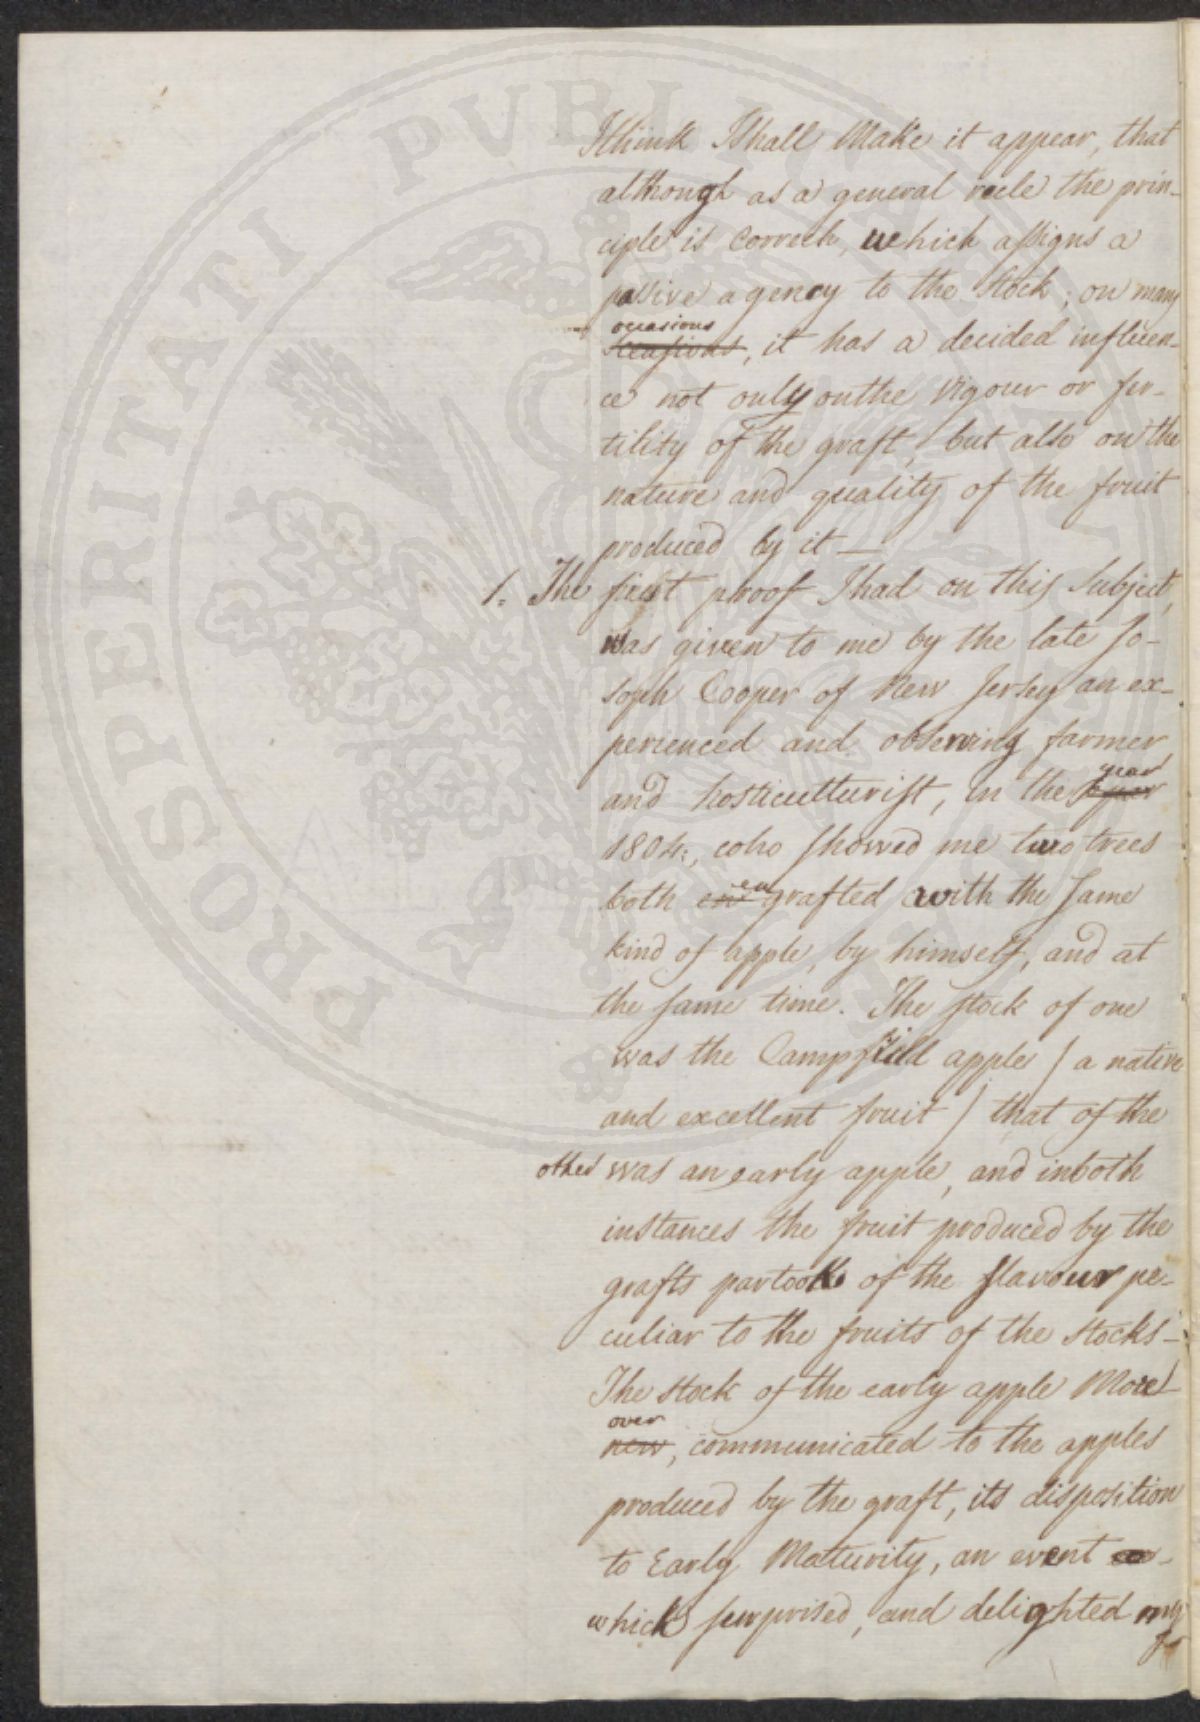 I think I Shall Make it appear, that
although as a general rule the prin-
ciple is Correct, which assigns a
passive agency to the Stock; on many
occasions
, it has a decided influen-
ce not only on the vigour or fer-
tility of the graft, but also on the
nature and quality of the fruit
produced by it —
1. The first proof I had on this Subject,
was given to me by the late Jo-
seph Cooper of New Jersey an ex-
perienced and observing farmer
and horticulturist, in the year
1804, who showed me two trees
both engrafted with the Same
kind of apple, by himself, and at
the same time. The stock of one
was the Campfield apple ( a native
and excellent fruit ) that of the
other was an early apple, and in both
instances the fruit produced by the
grafts partook of the flavour pe-
culiar to the fruits of the stocks -
The stock of the early apple More-
over
new, communicated to the apples
produced by the graft, its disposition
to Early Maturity, an event
which surprised, and delighted my
PROSPERITATI PUBLICAE